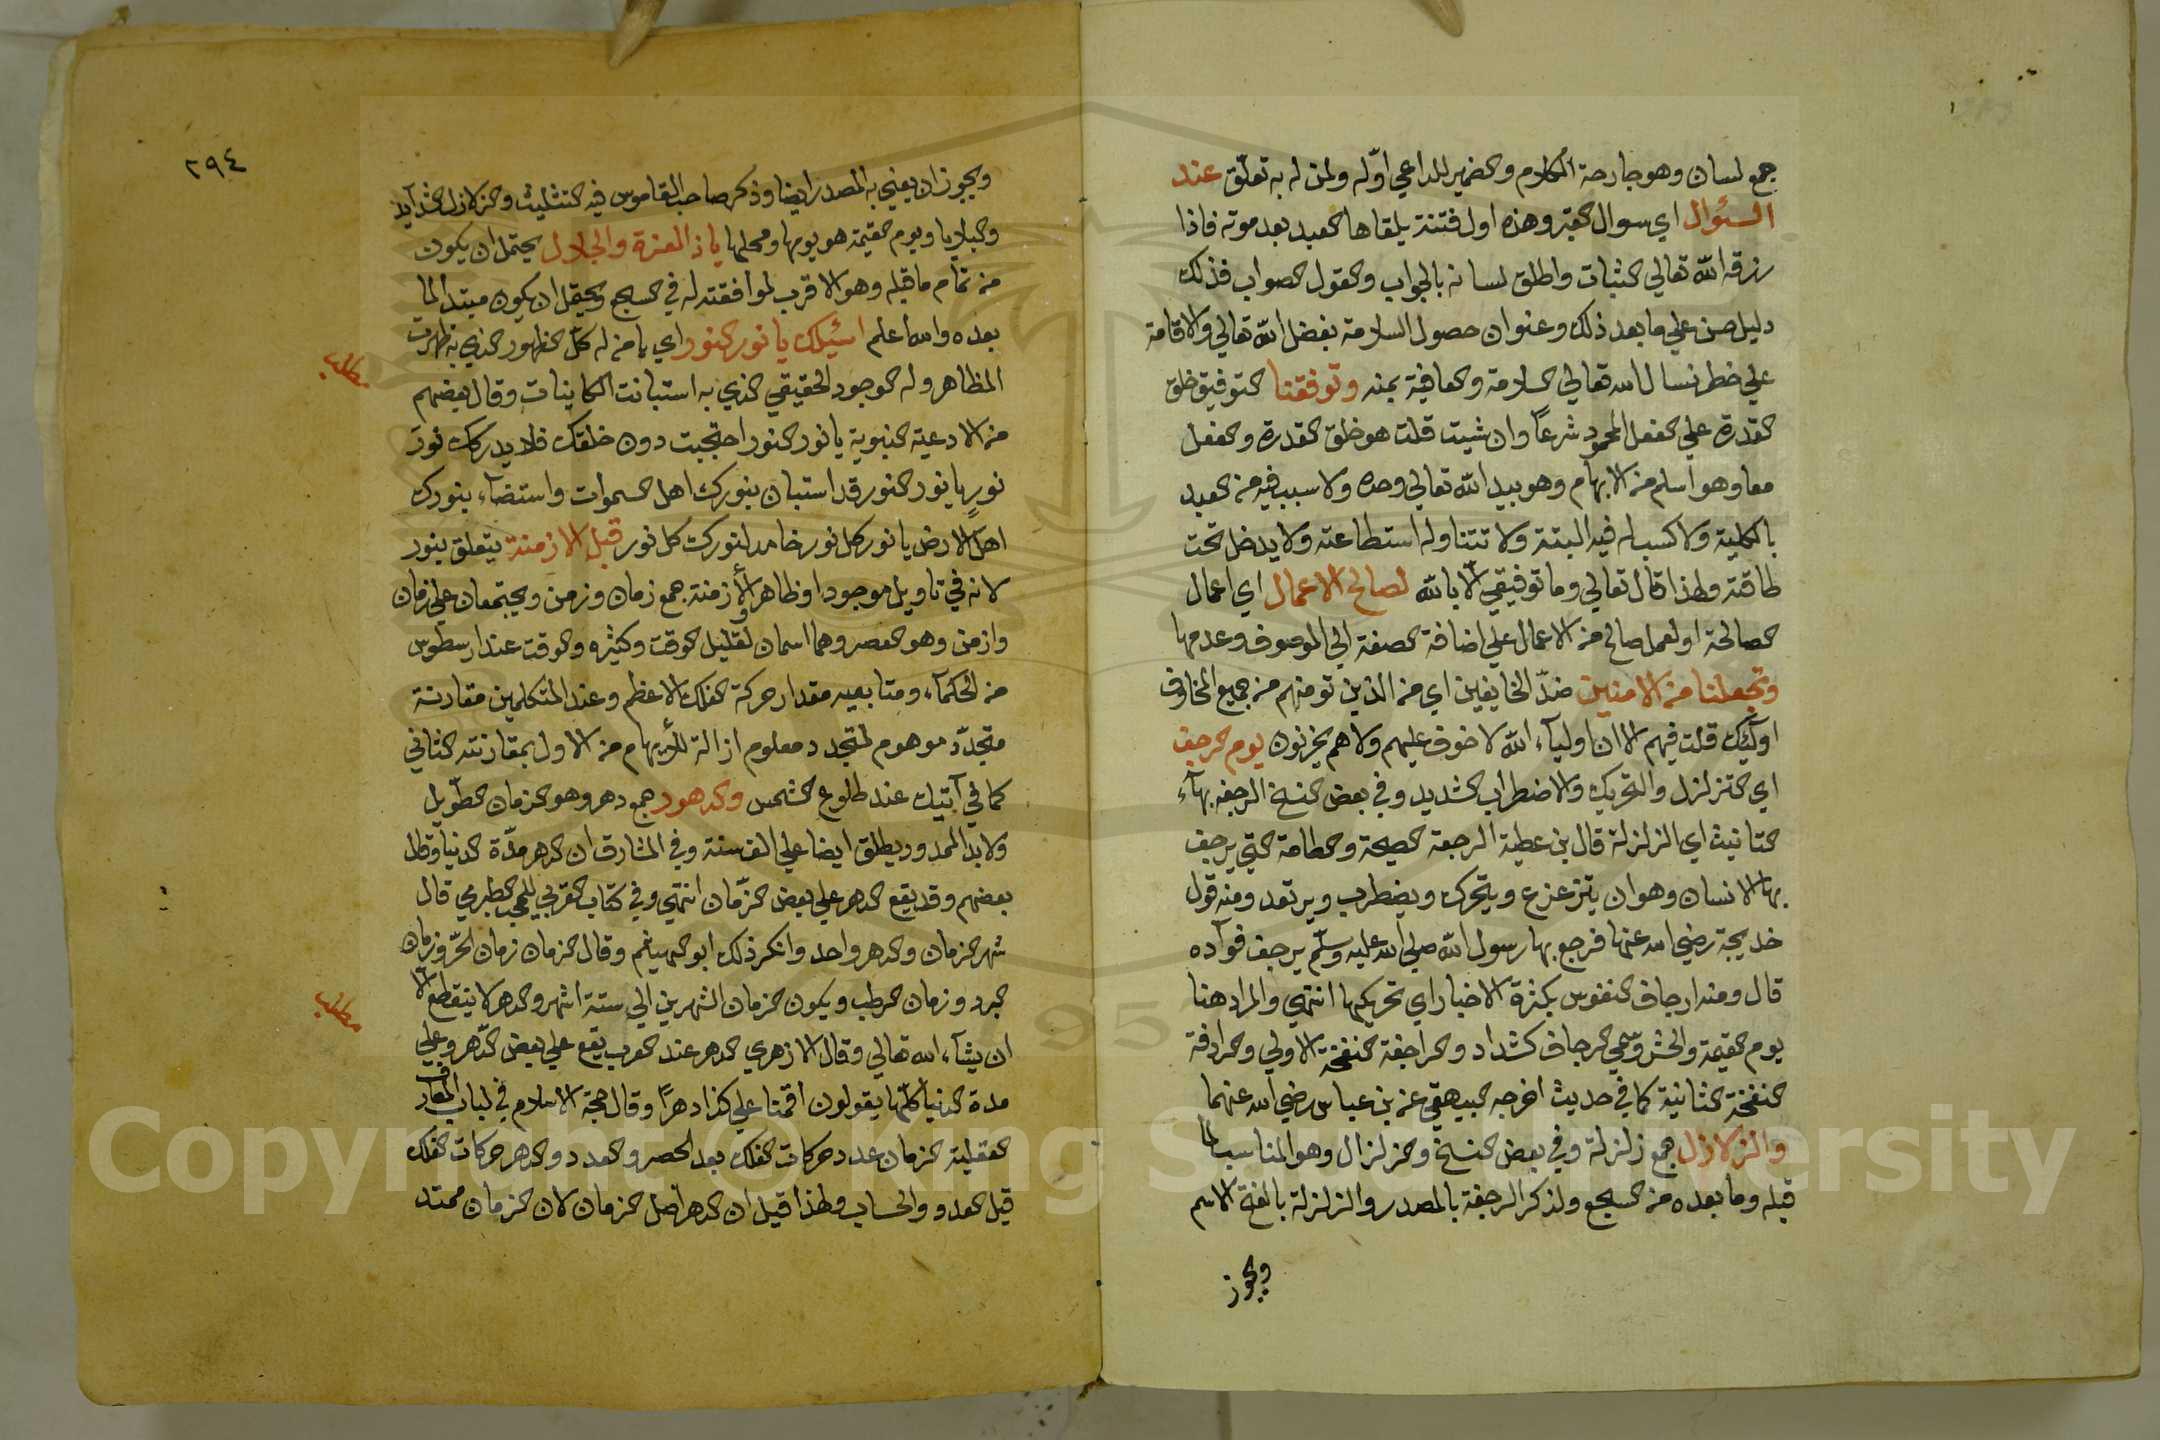 جمع لسان وهو جارحة الكلام والضمير للداعي اوّله ولمن له به تعلّق عند
السئوال اي سوال القبر وهذه اول فتنة يلقاها العبد بعد موته فاذا
رزقه الله تعالي الثبات واطلق لسانه بالجواب والقول الصواب فذلك
دليل حسن علي ما بعد ذلك وعنوان حصول السلامة بفضل الله تعالي والاقامة
علي خطر نسال الله تعالي السلامة والعافية بمنه وتوفقنا التوفيق خلق
القدرة علي الفعل المحمود شرعاً وان شيت قلت هو خلق القدرة والفعل
معا وهو اسلم من الابهام وهو بيد الله تعالي وحده ولا سبب فيه من العبد
بالكلية ولا كسب له فيه البتة ولا تتناوله استطاعته ولا يدخل تحت
طاقته ولهذا قال تعالي وما توفيقي الّا بالله لصالح الاعمال اي اعمال
الصالحة او لعمل صالح من الاعمال علي اضافة الصفة الي الموصوف وعدمها
وتجعلنا من الامنين ضدّ الخايفين اي من الذين تومنهم من جميع المخاوف
اوليك قلت فيهم الا ان اوليآء الله لا خوف عليهم ولا هم يحزنون يوم الرجف
اي التزلزل والتحريك والاضطراب الشديد وفي بعض النسخ الرجفه بهآء
التانيث اي الزلزلة قال بن عطية الرجفة الصيحة والطامة التي يرجف
بها الانسان وهو ان يتزعزع ويتحرك ويضطرب ويرتعد ومنه قول
خديجة رضي الله عنها فرجع بها رسول الله صلي الله عليه وسلّم يرجف فوآده
قال ومنه ارجاف النفوس بكثرة الاخبار اي تحريكها انتهي والمراد هنا
يوم القيمة والحشر وسمي الرجاف كشداد والراجفة النفخة الاولي والرادفة
النفخة الثانية كما في حديث اخرجه البيهقي عن بن عباس رضي الله عنهما
والزلازل جمع زلزلة وفي بعض النسخ والزلزال وهو المناسب لما
قبله وما بعده من السجع ولذكر الرجفة بالمصدر والزلزلة بالفتح الاسم
ويجوز
٢٩٤
ويجوز ان يعني به المصدر ايضا وذكر صاحب القاموس فيه التثليث والزلازل الشدآيد
والبلايا ويوم القيمة هو يومها ومحلها يا ذا العزة والجلال يحتمل ان يكون
من تمام ما قبله وهو الاقرب لموافقته له في السجع ويحتمل ان يكون مبتدا لما
بعده والله اعلم اسئلك يا نور النور اي يا من له كلّ الظهور الذي به ظهرت
المظاهر وله الوجود الحقيقي الذي به استبانت الكاينات وقال بعضهم
من الادعية النبوية يا نور النور احتجبت دون خلقك فلا يدرك نورك
نور يا نور النور قد استبان بنورك اهل السموات واستضآء بنورك
اهل الارض يا نور كل نور خامد لنورك كل نور قبل الازمنة يتعلق بنور
لانه في تاويل موجود او ظاهر والازمنة جمع زمان وزمن ويجتمعان علي زمان
وازمن وهو العصر وهما اسمان لقليل الوقت وكثيره والوقت عند ارسطوس
من الحكمآء ومتابعيه مقدار حركة الفلك الاعظم وعند المتكلمين مقارنة
متجدّد موهوم لمتجدد معلوم ازالة للابهام من الاول بمقارنته الثاني
كما في آتيك عند طلوع الشمس والدهور جمع دهر وهو الزمان الطويل
ولابد الممدود ويطلق ايضا علي الف سنة وفي المشارق ان الدهر مدّة الدنيا وقال
بعضهم وقد يقع الدهر علي بعض الزّمان انتهي وفي كتاب القربي للمحب الطبري قال
شهر الزمان والدهر واحد وانكر ذلك ابو الهيثم وقال الزمان زمان الحرّ وزمان
البرد وزمان الرطب ويكون الزمان الشهرين الي ستة اشهر والدهر لا ينقطع الّا
ان يشآء الله تعالي وقال الازهري الدهر عند العرب يقع علي بعض الدّهر وعلي
مدة الدنيا كلّها يقولون اقمنا علي كذا دهراً وقال حجة الاسلام في لباب المعارف
العقلية الزمان عدد حركات الفلك بعد الحصر والعدد والدهر حركات الفلك
قبل العدد والحساب ولهذا قيل ان الدهر اصل الزمان لان الزمان ممتد
مطلب
مطلب
Copyright © King Saud University